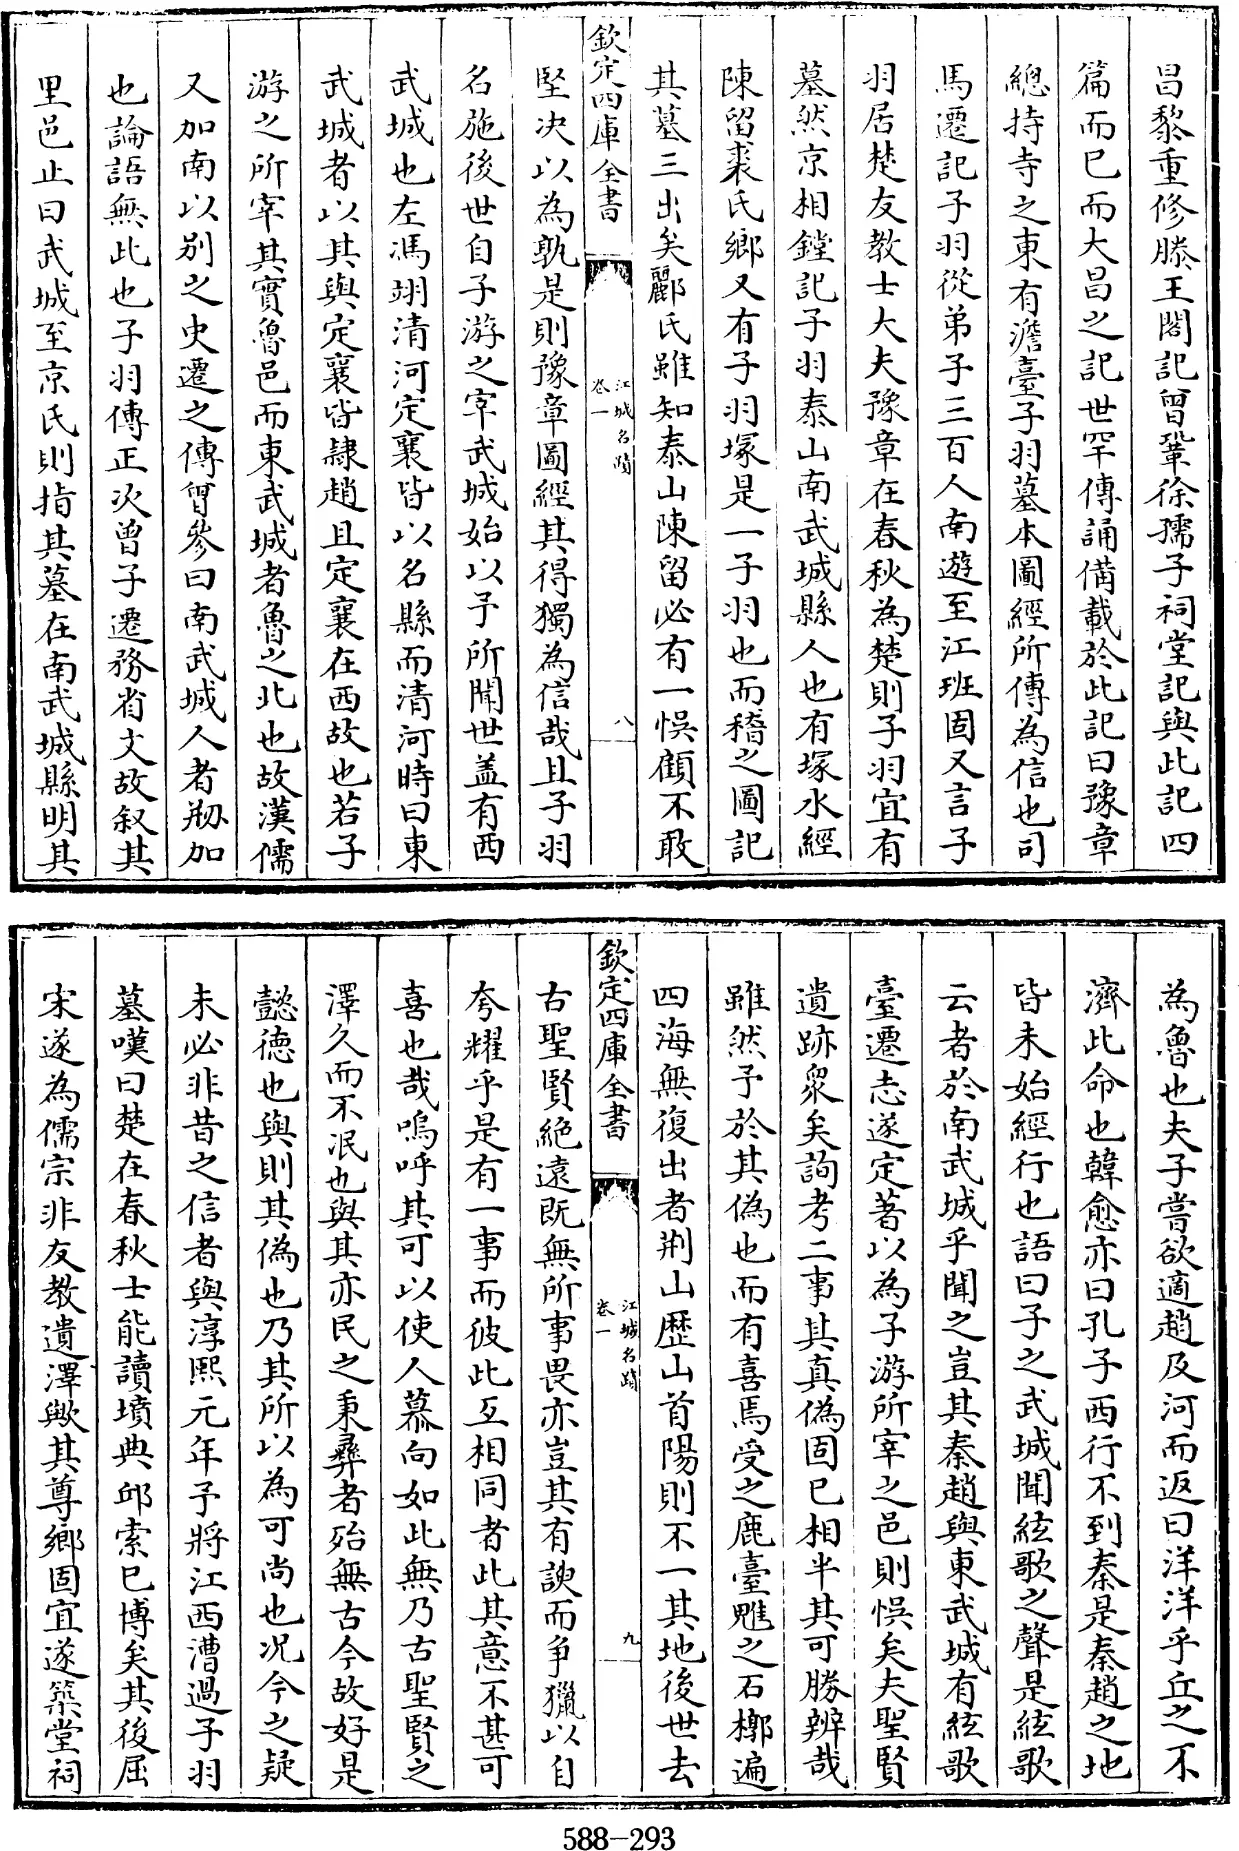 昌黎重修滕王閣記曾鞏徐孺子祠堂記與此記四
篇而已而大昌之記世罕傳誦備載於此記曰豫章
總持寺之東有澹臺子羽墓本圖經所傳為信也司
馬遷記子羽從弟子三百人南遊至江班固又言子
羽居楚友教士大夫豫章在春秋為楚則子羽宜有
墓然京相鏜記子羽泰山南武城縣人也有塚水經
陳留裘氏鄉又有子羽塚是一子羽也而稽之圖記
其墓三出矣酈氏雖知泰山陳留必有一悞顧不敢
欽定四庫全書
江城名蹟
卷一
八
堅决以為孰是則豫章圖經其得獨為信哉且子羽
名施後世自子游之宰武城始以予所聞世盖有西
武城也左馮翊清河定襄皆以名縣而清河時曰東
武城者以其與定襄皆隷趙且定襄在西故也若子
游之所宰其實魯邑而東武城者魯之北也故漢儒
又加南以别之史遷之傳曾參曰南武城人者刱加
也論語無此也子羽傳正次曾子遷務省文故叙其
里邑止曰武城至京氏則指其墓在南武城縣明其
為魯也夫子嘗欲適趙及河而返曰洋洋乎丘之不
濟此命也韓愈亦曰孔子西行不到秦是秦趙之地
皆未始經行也語曰子之武城聞絃歌之聲是絃歌
云者於南武城乎聞之豈其秦趙與東武城有絃歌
臺遷志遂定著以為子游所宰之邑則悞矣夫聖賢
遺跡衆矣詢考二事其真偽固已相半其可勝辨哉
雖然予於其偽也而有喜焉受之鹿臺魋之石槨遍
四海無復出者荆山歴山首陽則不一其地後世去
欽定四庫全書
江城名蹟
卷一
九
古聖賢絶遠既無所事畏亦豈其有諛而争獵以自
夸耀乎是有一事而彼此互相同者此其意不甚可
喜也哉嗚呼其可以使人慕向如此無乃古聖賢之
澤久而不泯也與其亦民之秉彞者殆無古今故好是
懿德也與則其偽也乃其所以為可尚也况今之疑
未必非昔之信者與淳熙元年予將江西漕過子羽
墓嘆曰楚在春秋士能讀墳典邱索已博矣其後屈
宋遂為儒宗非友教遺澤歟其尊鄉固宜遂築堂祠
588-293